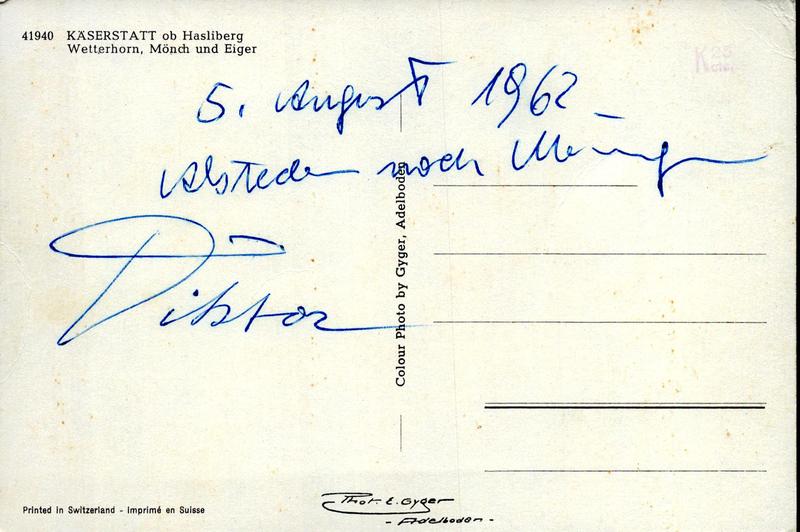 41940 KÄSERSTATT ob Hasliberg
Wetterhorn, Mönch und Eiger
K 25
5. August 1962
nach
Colour Photo by Gyger, Adelboden
Printed in Switzerland - Imprimé en Suisse
Phot. E. Gyger
- Adelboden -